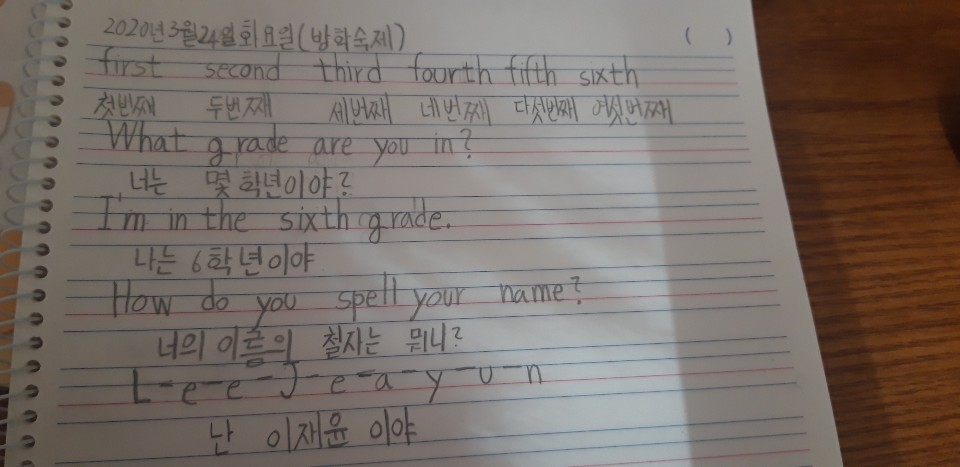 2020년3월24일화요일(방학숙제) ( )
first second third fourth fifth sixth
첫번째 두번째 세번째 네번째 다섯번째 여섯번째
What grade are you in?
너는 몇학년이야?
I'm in the sixth grade.
나는 6학년이야
How do you spell your name?
너의 이름의 철자는 뭐니?
L-e-e-J-e-a-y-u-n
난 이재윤 이야